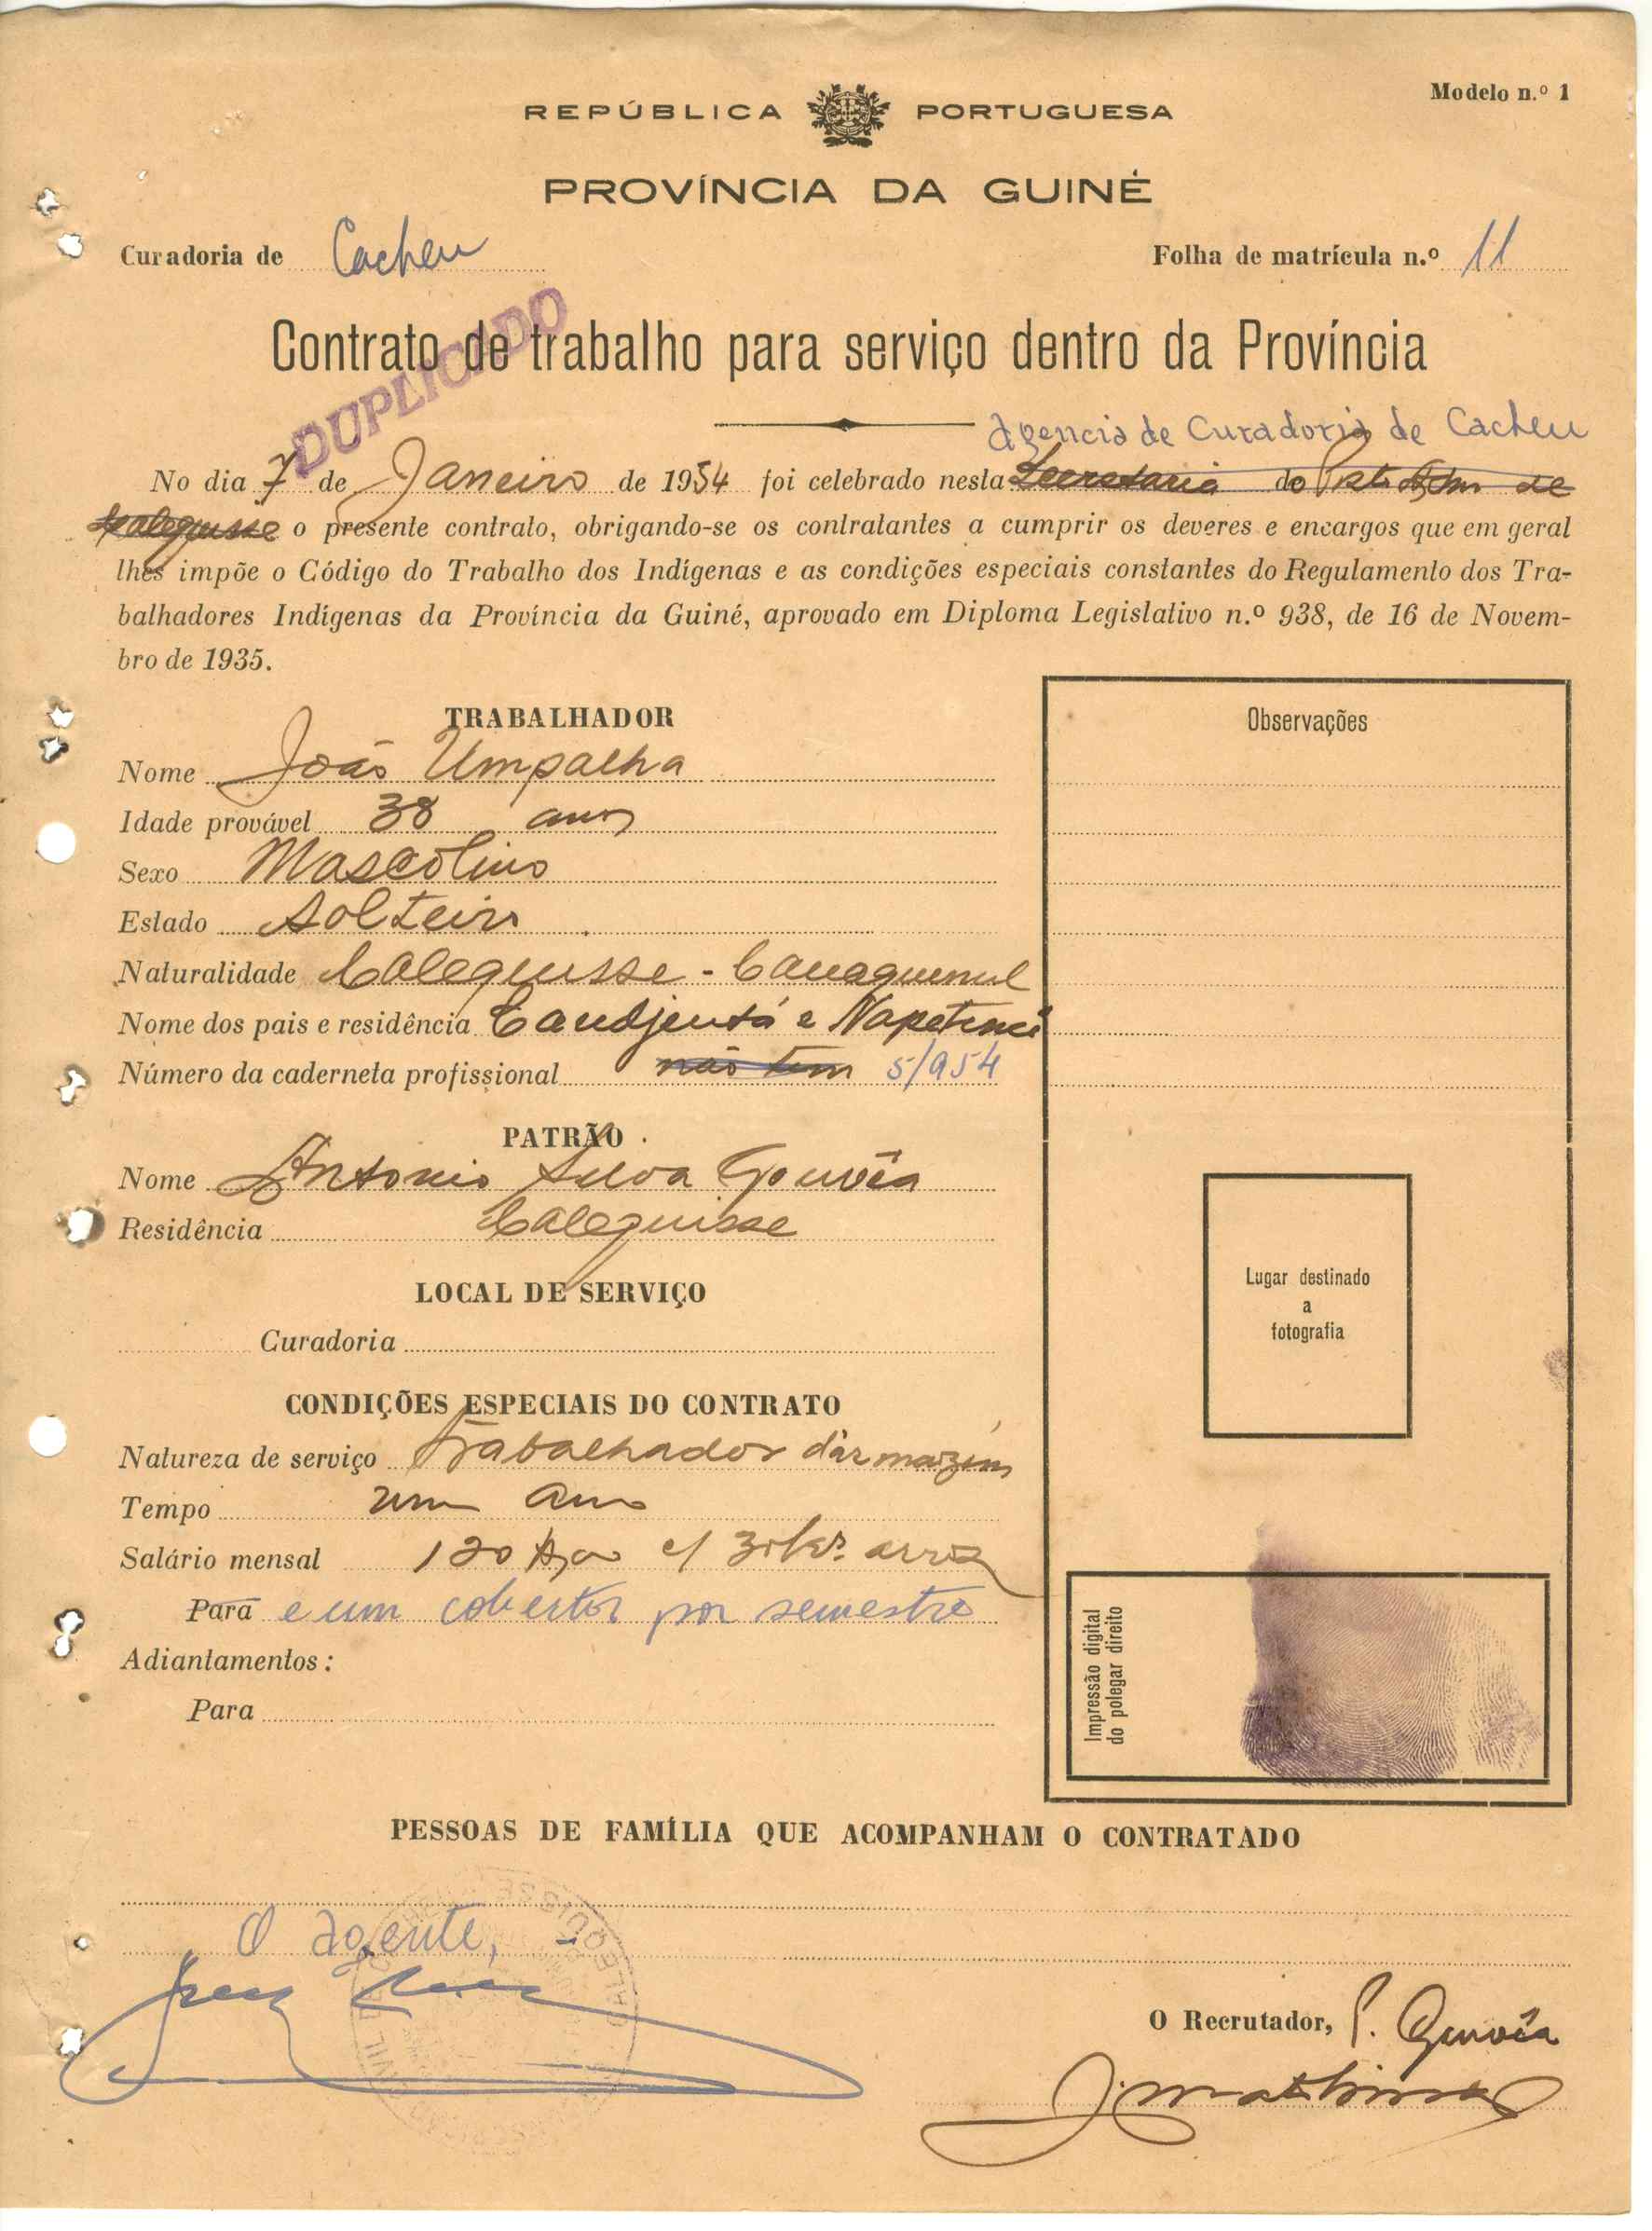 Modelo n.º 1
REPÚBLICA PORTUGUESA
PROVÍNCIA DA GUINÉ
Curadoria de Cacheu Folha de matrícula n.º 11
DUPLICADO
Contrato de trabalho para serviço dentro da Província
Agencia de Curadoria de Cacheu
No dia 7 de Janeiro de 1954 foi celebrado nesta Secretaria do Posto Adm de
Caleguisse o presente contrato, obrigando-se os contratantes a cumprir os deveres e encargos que em geral
lhes impõe o Código do Trabalho dos Indígenas e as condições especiais constantes do Regulamento dos Tra-
balhadores Indígenas da Província da Guiné, aprovado em Diploma Legislativo n.º 938, de 16 de Novem-
bro de 1935.
TRABALHADOR
Nome João Umpalha
Idade provável 38 anos
Sexo Mascolino
Estado Solteiro
Naturalidade Caleguisse -
Nome dos pais e residência e
Número da caderneta profissional não tem 5/954
PATRÃO
Nome Antonio Silva Gouvêa
Residência Caleguisse
LOCAL DE SERVIÇO
Curadoria
CONDIÇÕES ESPECIAIS DO CONTRATO
Natureza de serviço Trabalhador d'armazim
Tempo um ano
Salário mensal 120$00 c/ arroz
Para e um cobertor por semestre
Adiantamentos:
Para
Observações
Lugar destinado
a
fotografia
Impressão digital
do polegar direito
PESSOAS DE FAMÍLIA QUE ACOMPANHAM O CONTRATADO
O agente,
O Recrutador, P. Gouvêa